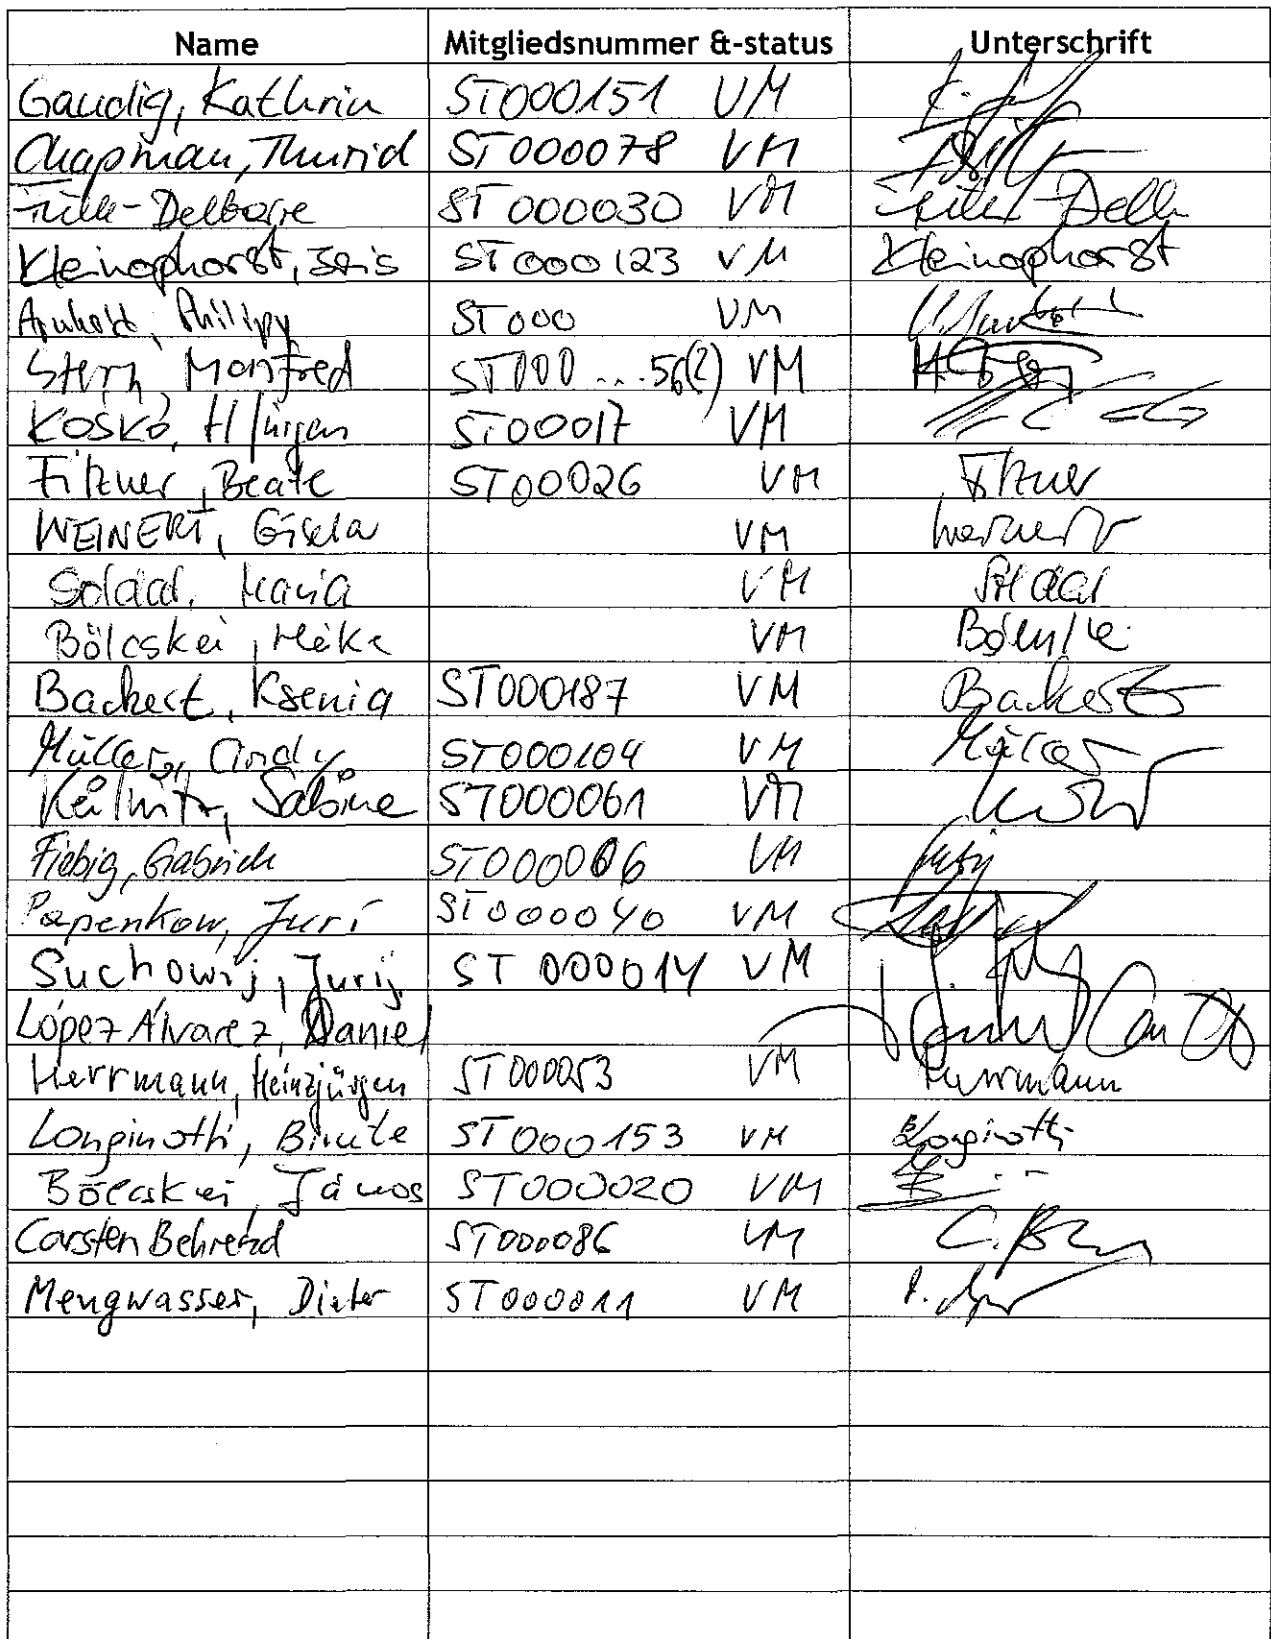 Name Mitgliedsnummer &-status Unterschrift
Gaudig, Kathrin ST000151 VM
Chapman, Thurid ST000078 VM
-Delbarre ST000030 VM
Kleinophorst, Iris ST000123 VM Kleinophorst
Philipp ST000 VM
Stern, Manfred ST000...56(?) VM
Kosko, H/Jürgen ST00017 VM
Fitzner, Beate ST00026 VM Fitzner
WEINERT, Gisela VM Weinert
Soldad, Maria VM Soldad
Bölcskei, Réka VM
Backert, Ksenia ST000187 VM Backert
Müller, Cindy ST000104 VM Müller
Keilwitz, Sabine ST000061 VM
Fiebig, Gabriele ST000006 VM
Papenkow, Juri ST000040 VM
Suchowij, Jurij ST000014 VM
López Álvarez, Daniel
Herrmann, Heinzjürgen ST000053 VM Herrmann
Longinotti, Birute ST000153 VM Longinotti
Bölcskei, János ST000020 VM
Carsten Behrend ST000086 VM
Mengwasser, Dieter ST000011 VM